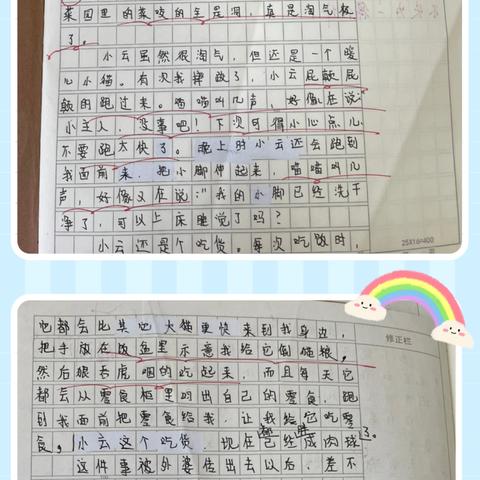 菜园里的菜咬的全是洞，真是淘气极
了。
小云虽然很淘气，但还是一个暖
心小猫。有次我摔跤了，小云屁颠屁
颠的跑过来。喵喵叫几声，好像在说：“
小主人，没事吧！下次可得小心点儿，
不要跑太快了。晚上时小云还会跑到
我面前来，把小脚伸起来，喵喵叫几
声，好像又在说：“我的小脚已经洗干
净了，可以上床睡觉了吗？
小云还是个吃货。每次吃饭时，
25X16=400
它都会比其它大猫更快来到我身边，
把手放在饭盆里示意我给它倒猫粮，
然后狼吞虎咽的吃起来，而且每天它
都会从零食柜里叼出自己的零食，跑
到我面前把零食给我，让我给它吃零
食。小云这个吃货，现在已经成肉球了。
都胖
这件事被外婆传出去以后，差不
修正栏